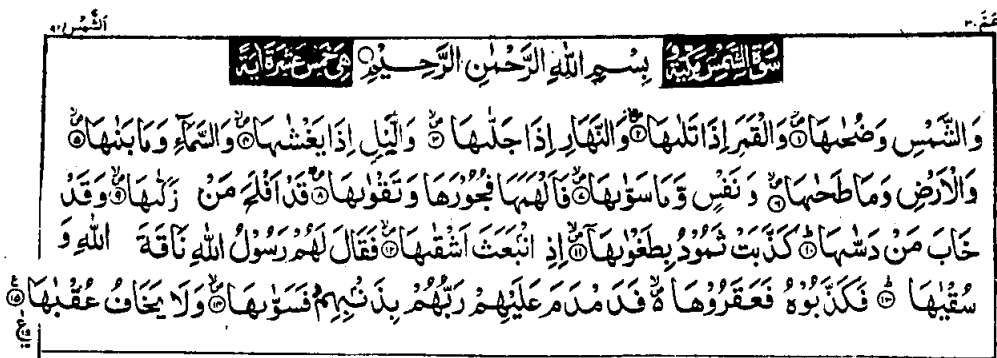 عَمَّ ٣٠ اَلشَّمْس ٩١
سُوْرَةُ الشَّمْسِ مَكِّيَّةٌ بِسْمِ اللّٰهِ الرَّحْمٰنِ الرَّحِيْمِ هِيَ خَمْسَ عَشْرَةَ اٰيَةً
وَالشَّمْسِ وَضُحٰىهَا ۝١ وَالْقَمَرِ اِذَا تَلٰىهَا ۝٢ وَالنَّهَارِ اِذَا جَلّٰىهَا ۝٣ وَالَّيْلِ اِذَا يَغْشٰىهَا ۝٤ وَالسَّمَآءِ وَمَا بَنٰىهَا ۝٥
وَالْاَرْضِ وَمَا طَحٰىهَا ۝٦ وَنَفْسٍ وَّمَا سَوّٰىهَا ۝٧ فَاَلْهَمَهَا فُجُوْرَهَا وَتَقْوٰىهَا ۝٨ قَدْ اَفْلَحَ مَنْ زَكّٰىهَا ۝٩ وَقَدْ
خَابَ مَنْ دَسّٰىهَا ۝١٠ كَذَّبَتْ ثَمُوْدُ بِطَغْوٰىهَآ ۝١١ اِذِ انْۢبَعَثَ اَشْقٰىهَا ۝١٢ فَقَالَ لَهُمْ رَسُوْلُ اللّٰهِ نَاقَةَ اللّٰهِ وَ
سُقْيٰهَا ۝١٣ فَكَذَّبُوْهُ فَعَقَرُوْهَا فَدَمْدَمَ عَلَيْهِمْ رَبُّهُمْ بِذَنْۢبِهِمْ فَسَوّٰىهَا ۝١٤ وَلَا يَخَافُ عُقْبٰهَا ۝١٥